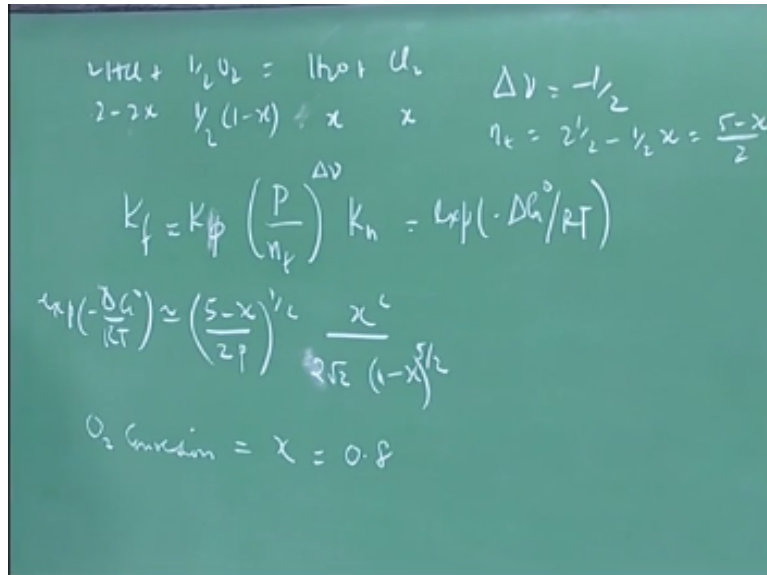 2HCl + 1/2 O2 = H2O + Cl2
2-2x 1/2 (1-x) x x
Δν = -1/2
nt = 2 1/2 - 1/2 x = (5-x)/2
Kf = Kφ (P/nt)^Δν Kn = exp(-ΔG°/RT)
exp(-ΔG°/RT) ≃ ((5-x)/2P)^1/2 x^2/(2√2 (1-x)^5/2)
O2 Conversion = x = 0.8